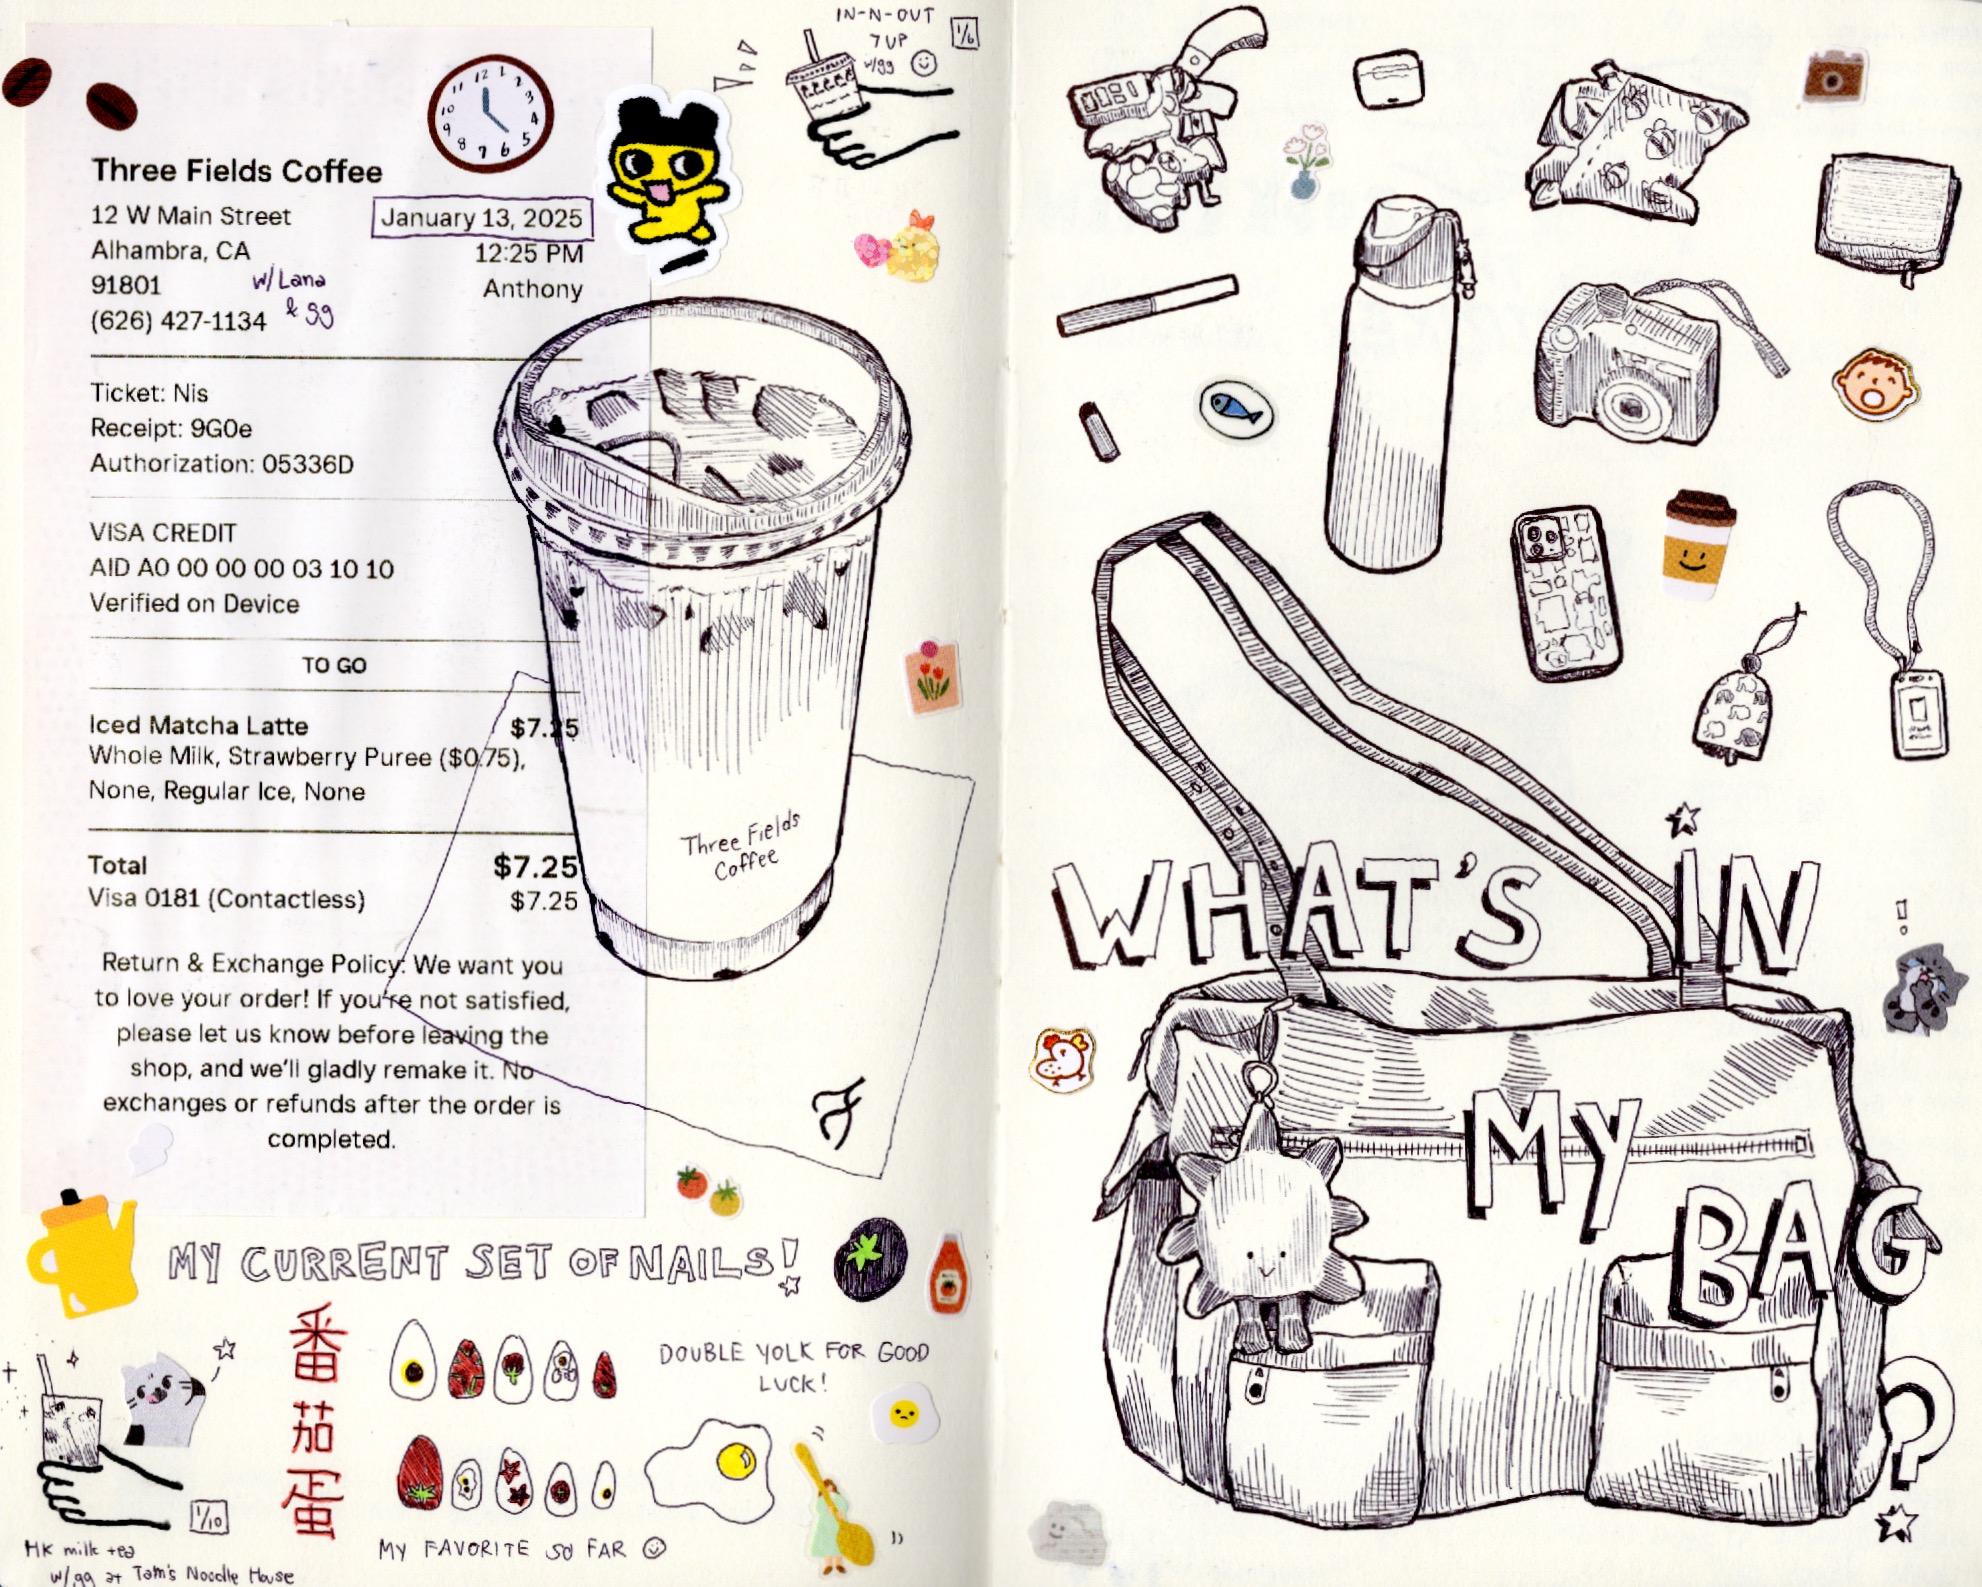 IN-N-OUT
7UP
w/gg
1/6
12 1 2 3 4 5 6 7 8 9 10 11
Three Fields Coffee
12 W Main Street
January 13, 2025
Alhambra, CA
12:25 PM
91801
w/ Lana
& gg
Anthony
(626) 427-1134
Ticket: Nis
Receipt: 9G0e
Authorization: 05336D
VISA CREDIT
AID A0 00 00 00 03 10 10
Verified on Device
TO GO
Iced Matcha Latte $7.25
Whole Milk, Strawberry Puree ($0.75),
None, Regular Ice, None
Total $7.25
Visa 0181 (Contactless) $7.25
Three Fields
Coffee
Return & Exchange Policy: We want you
to love your order! If you're not satisfied,
please let us know before leaving the
shop, and we'll gladly remake it. No
exchanges or refunds after the order is
completed.
MY CURRENT SET OF NAILS!
番茄蛋
DOUBLE YOLK FOR GOOD
LUCK!
MY FAVORITE SO FAR
1/10
HK milk tea
w/gg at Tam's Noodle House
WHAT'S IN
MY
BAG
?
!